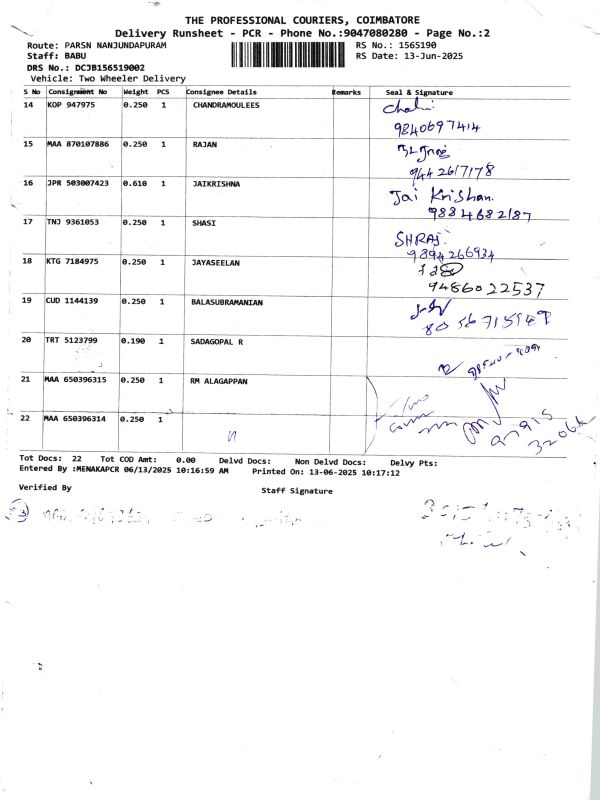 THE PROFESSIONAL COURIERS, COIMBATORE
Delivery Runsheet - PCR - Phone No.:9047080280 - Page No.:2
Route: PARSN NANJUNDAPURAM RS No.: 1565190
Staff: BABU RS Date: 13-Jun-2025
DRS No.: DCJB156519002
Vehicle: Two Wheeler Delivery
S No Consignment No Weight PCS Consignee Details Remarks Seal & Signature
14 KOP 947975 0.250 1 CHANDRAMOULEES
9840697414
15 MAA 870107886 0.250 1 RAJAN
9442617178
16 JPR 503007423 0.610 1 JAIKRISHNA Jai Krishan.
9884682187
17 TNJ 9361053 0.250 1 SHASI SHRAJ.
9894266934
18 KTG 7184975 0.250 1 JAYASEELAN
9486022537
19 CUD 1144139 0.250 1 BALASUBRAMANIAN
20 TRT 5123799 0.190 1 SADAGOPAL R
21 MAA 650396315 0.250 1 RM ALAGAPPAN
22 MAA 650396314 0.250 1
Tot Docs: 22 Tot COD Amt: 0.00 Delvd Docs: Non Delvd Docs: Delvy Pts:
Entered By :MENAKAPCR 06/13/2025 10:16:59 AM Printed On: 13-06-2025 10:17:12
Verified By Staff Signature